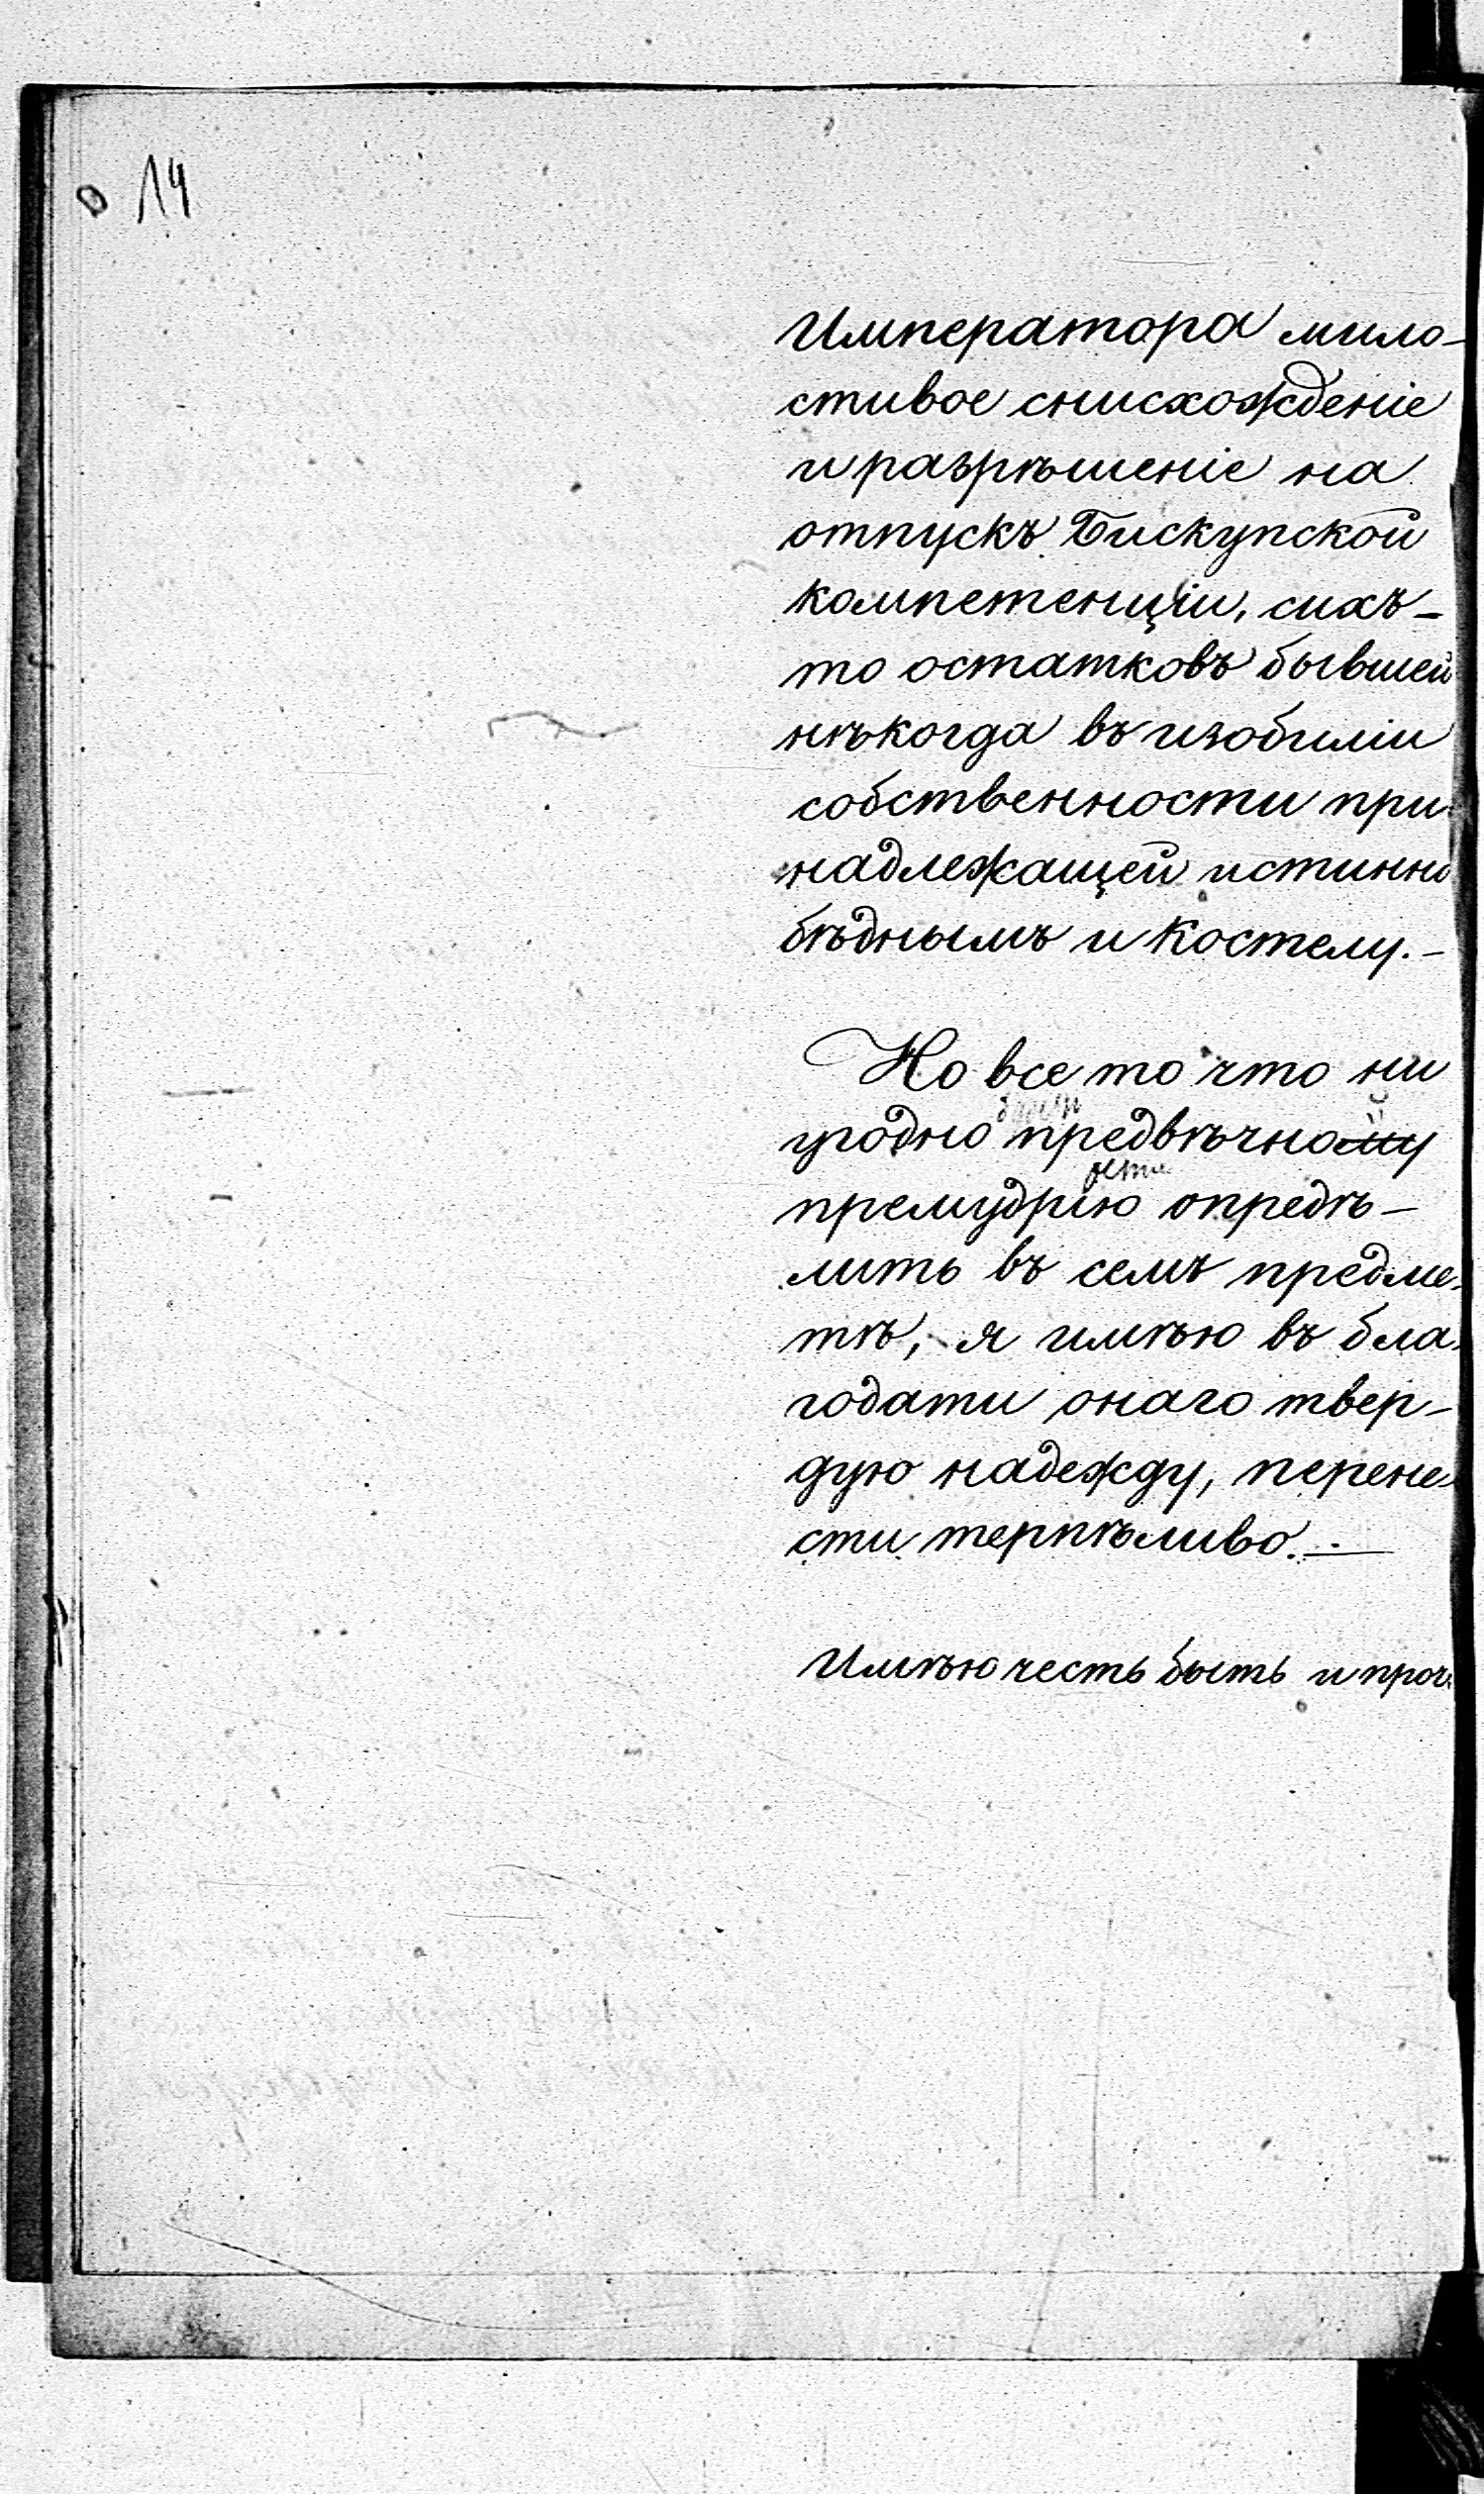 14
Императора мило-
стивое снисхожденіе
и разрѣшеніе на
отпускъ Бискупской
компетенціи, сихъ-
то остатковъ бывшей
нѣкогда въ изобиліи
собственности при-
надлежащей истинно
бѣднымъ и костелу.-
Но все то что ни
угодно предвѣчному
премудрію опредѣ-
лить въ семъ предме-
тѣ, я имѣю въ бла-
годати онаго твер-
дую надежду, перене-
сти терпѣливо.-
Имѣю честь быть и проч.